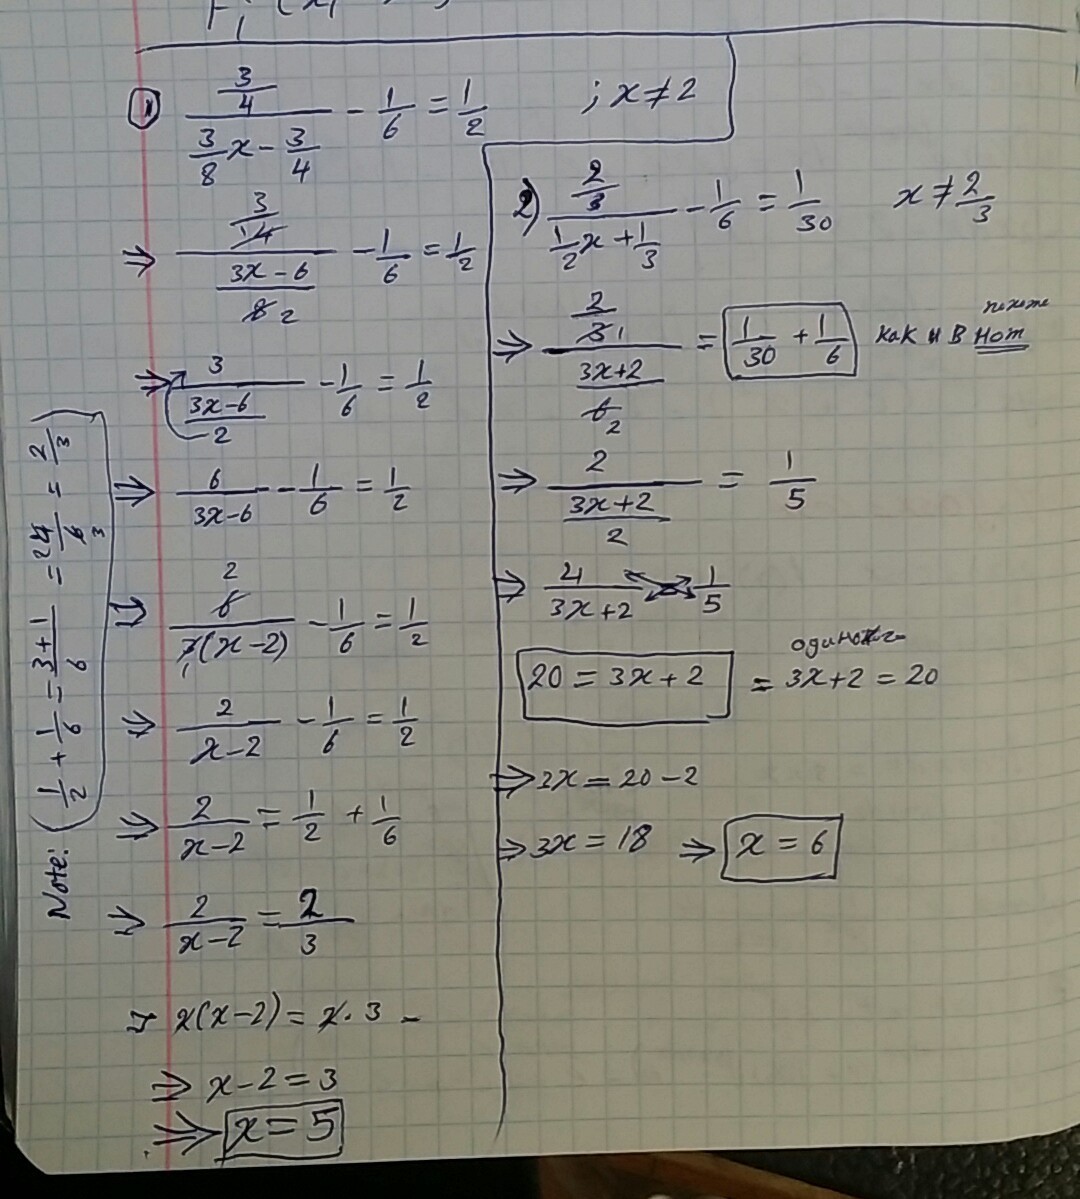 1) (3/4)/(3/8 x - 3/4) - 1/6 = 1/2 ; x ≠ 2
⇒ (3/14)/((3x - 6)/8 2) - 1/6 = 1/2
⇒ 3/((3x-6)/2) - 1/6 = 1/2
⇒ 6/(3x-6) - 1/6 = 1/2
⇒ 2 6/(3 1(x-2)) - 1/6 = 1/2
⇒ 2/(x-2) - 1/6 = 1/2
⇒ 2/(x-2) = 1/2 + 1/6
⇒ 2/(x-2) = 2/3
⇒ 2(x-2) = 2·3 -
⇒ x-2 = 3
⇒ x = 5
Note: (1/2 + 1/6 = (3+1)/6 = 2 4/6 3 = 2/3)
2) (2/3)/(1/2 x + 1/3) - 1/6 = 1/30 x ≠ 2/3
⇒ (2/3 1)/((3x+2)/6 2) = 1/30 + 1/6 как и в Нот
⇒ 2/((3x+2)/2) = 1/5
⇒ 4/(3x+2) 1/5
20 = 3x + 2 = 3x+2 = 20
⇒ 3x = 20 - 2
⇒ 3x = 18 ⇒ x = 6